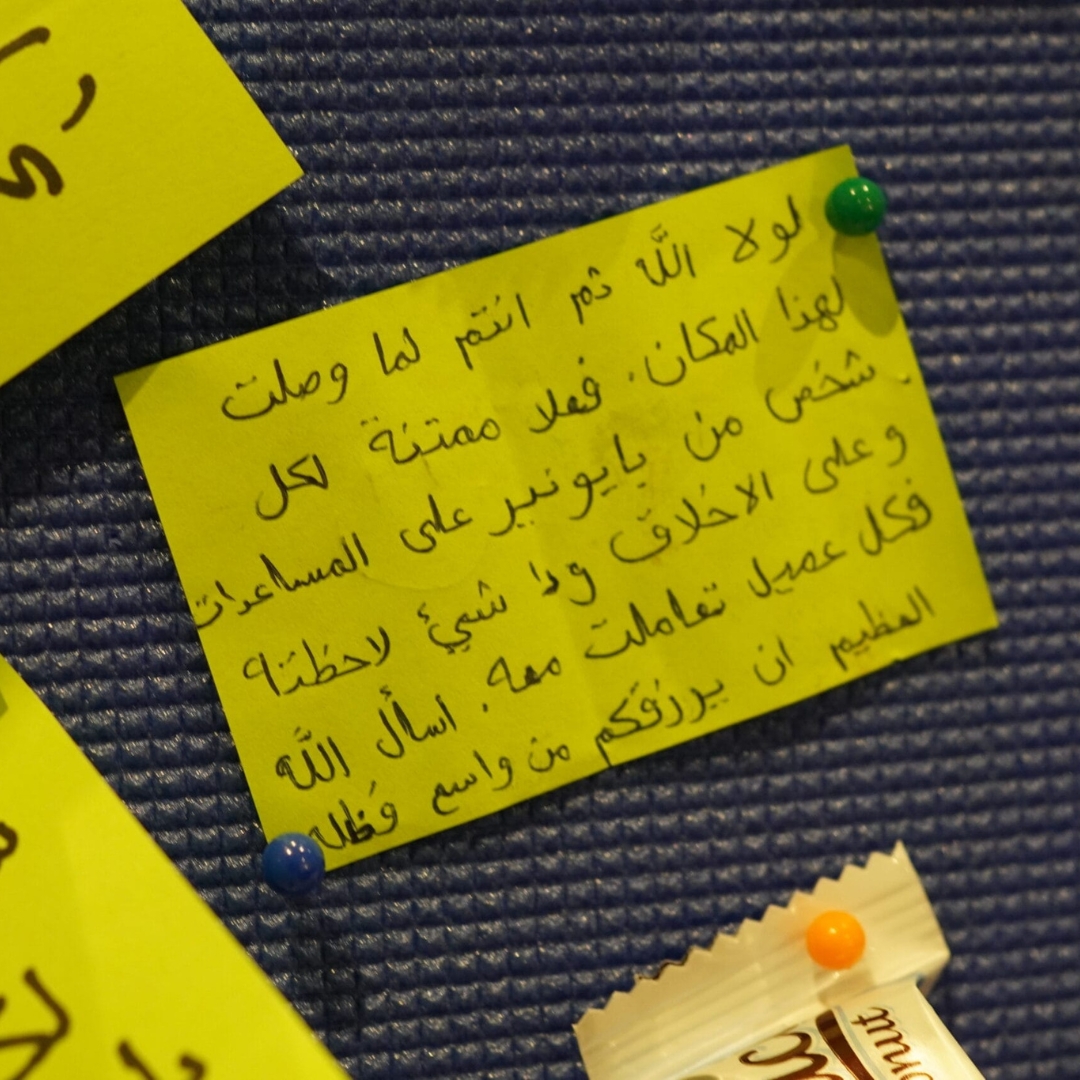 لولا اللّٰه ثم انتم لما وصلت
لهذا المكان. فعلا ممتنة لكل
شخص من بايونير على المساعدات
وعلى الاخلاق ودا شيئ لاحظته
فكل عميل تعاملت معه. اسأل اللّٰه
العظيم ان يرزقكم من واسع فظله